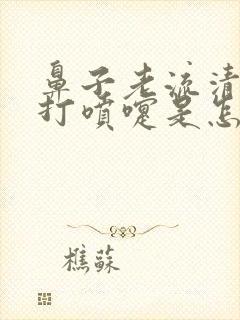 鼻子老流清
打噴嚏是怎
樵蘇